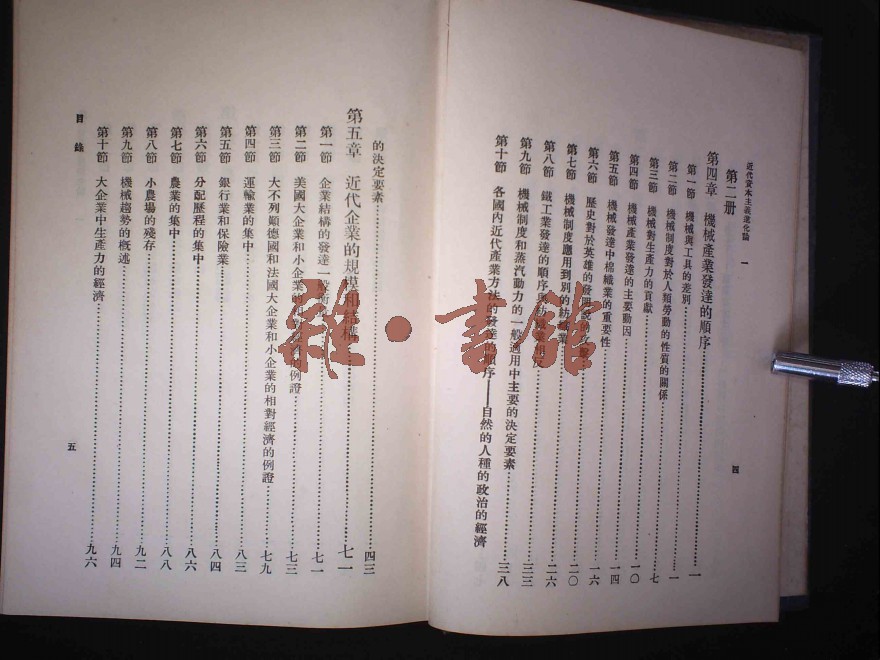 近代資本主義進化論 一
四
第二册
第四章 機械產業發達的順序……一
第一節 機械與工具的差別……一
第二節 機械制度對於人類勞動的性質的關係……一
第三節 機械對生產力的貢獻……七
第四節 機械產業發達的主要動因……一〇
第五節 機械發達中棉織業的重要性……一四
第六節 歷史對於英雄的發明說的……一六
第七節 機械制度應用到別的紡織業……二〇
第八節 鐵工業發達的順序與紡織業相反……二六
第九節 機械制度和蒸汽動力的一般適用中主要的決定要素……三三
第十節 各國內近代產業方法的發達的順序——自然的人種的政治的經濟……三八
的決定要素……四三
第五章 近代企業的規模和結構……七一
第一節 企業結構的發達一般……七一
第二節 美國大企業和小企業的相對經濟的例證……七三
第三節 大不列顛德國和法國大企業和小企業的相對經濟的例證……七九
第四節 運輸業的集中……八三
第五節 銀行業和保險業……八四
第六節 分配歷程的集中……八六
第七節 農業的集中……八八
第八節 小農場的殘存……九二
第九節 機械趨勢的概述……九四
第十節 大企業中生產力的經濟……九六
目錄
五
雜•書館